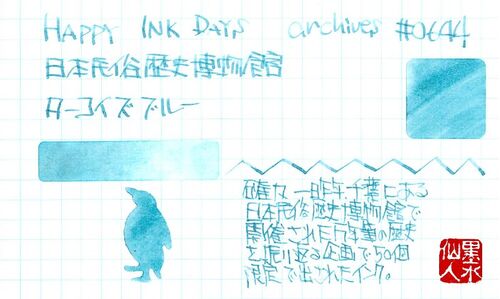 HAPPY INK DAYS archives #0644
日本民俗歴史博物館
ターコイズブルー
確か、一昨年千葉にある
日本民俗歴史博物館で
開催された万年筆の歴史
を振り返る企画で50個
限定で出されたインク。
墨水
仙人